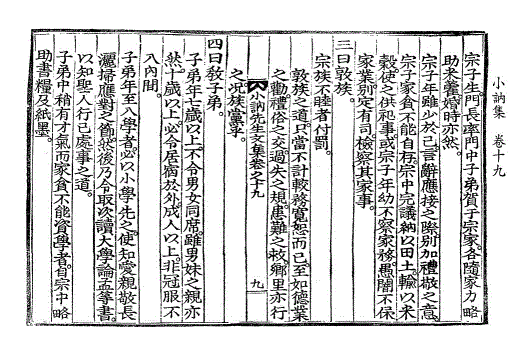 小訥集 卷十九
宗子生門長率門中子弟賀于宗家各隨家力略
助米藿婚時亦然
宗子年雖少於己言辭應接之際別加禮敬之意
宗子家貧不能自存宗中完議納以田土輸以米
穀使之供祀事或宗子年幼不察家務愚闇不保
家業別定有司檢察其家事
三曰敦族
宗族不睦者付罰
敦族之道只當不計較務寬恕而已至如德業
之勸禮俗之交過失之規患難之救鄉里亦行
之况族黨乎
小訥先生文集卷之十九 九
四曰敎子弟
子弟年七歲以上不令男女同席雖男妹之親亦
然十歲以上必令居宿於外成人以上非冠服不
入內間
子弟年至入學者必以小學先之使知愛親敬長
灑掃應對之節然後乃令取次讀大學論孟等書
以知聖人行己處事之道
子弟中稍有才氣而家貧不能資學者自宗中略
助書糧及紙墨